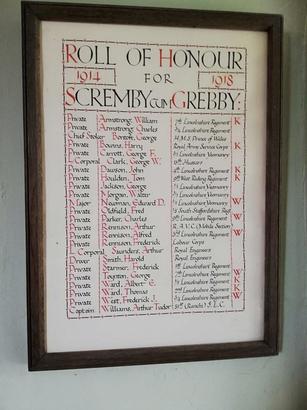 ROLL OF HONOUR
1914 FOR 1918
SCREMBY CUM GREBBY:
Private Armstrong, William 7th Lincolnshire Regiment K
Private Armstrong, Charles Lincolnshire Regiment
Chief Stoker Bonton, George H.M.S. Prince of Wales
Private Bowns, Harry Royal Army Service Corps K
Private Garrett, George F. Lincolnshire Yeomanry
L. Corporal Clark, George W. Hussars
Private Dawson, John Lincolnshire Regiment K
Private Houlden, Tom West Riding Regiment K
Private Jackson, George Lincolnshire Yeomanry
Private Morgan, Walter Lincolnshire Yeomanry
Major Newman, Edward D. Lincolnshire Yeomanry W
Private Oldfield, Fred South Staffordshire Regt
Private Parker, Charles Lincolnshire Regiment W
Private Rennison, Arthur R.A.V.C. (Mobile Section)
Private Rennison, Alfred Lincolnshire Regiment W
Private Rennison, Frederick Labour Corps
L. Corporal Saunders, Arthur Royal Engineers
Driver Smith, Harold Royal Engineers
Private Starmer, Frederick Lincolnshire Regiment
Private Toynton, George Lincolnshire Regiment W
Private Ward, Albert E. Lincolnshire Regiment K
Private Ward, Thomas 2nd Lincolnshire Regiment K
Private West, Frederick J. Lincolnshire Regiment W
Captain Williams, Arthur Tudor (Ranchi) S. & C.